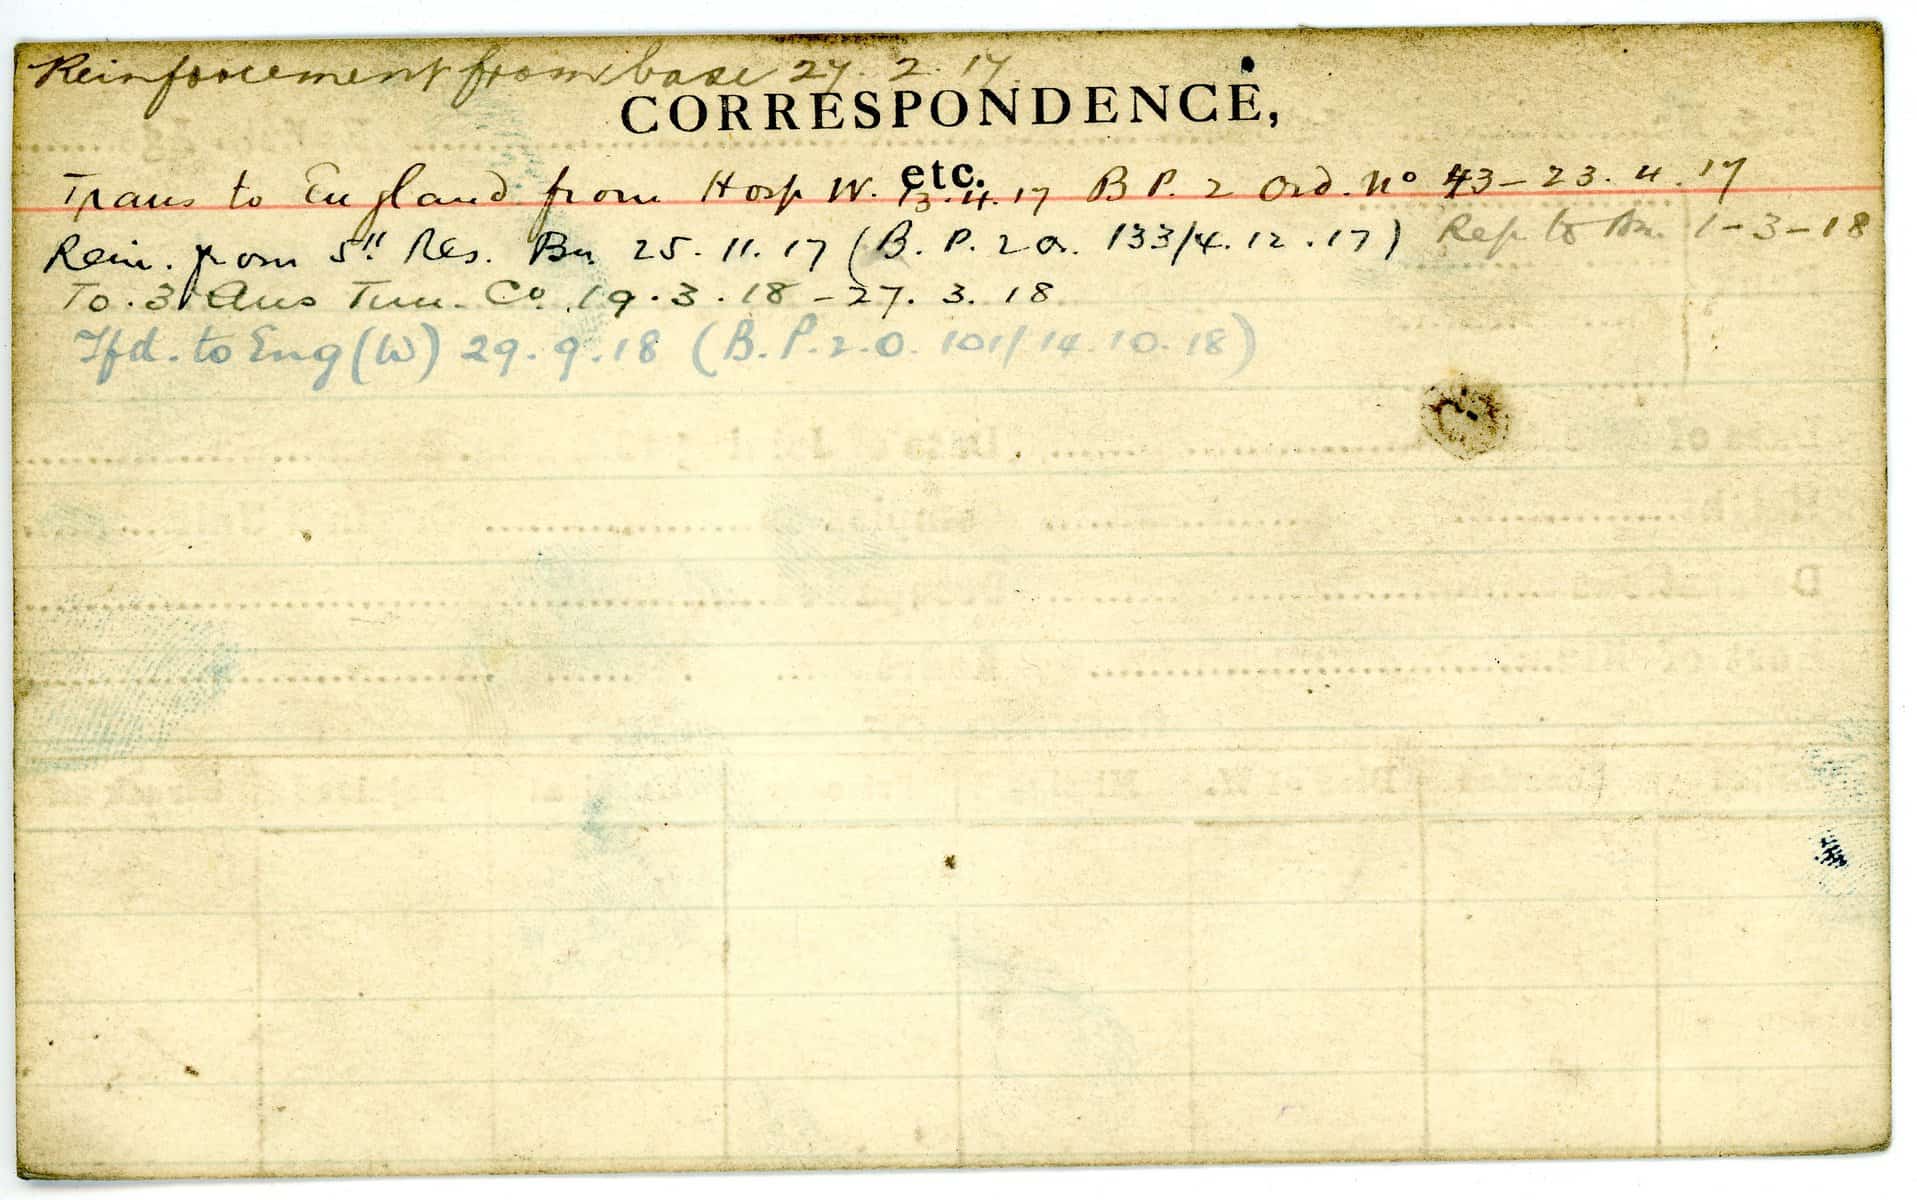 Reinforcement from base 27. 2. 17.
CORRESPONDENCE,
etc.
Trans to England from Hosp W. 13.4.17 B P. 2 Ord. No 43-23. 4. 17
Rein. from 5" Res. Bn 25. 11. 17 (B. P. 2 O. 133/4. 12. 17) Rep to Bn. 1-3-18
To. 3 Aus Tun. Co. 19. 3. 18 - 27. 3. 18
Tfd. to Eng (W) 29. 9. 18 (B. P. 2. O. 101/14. 10. 18)